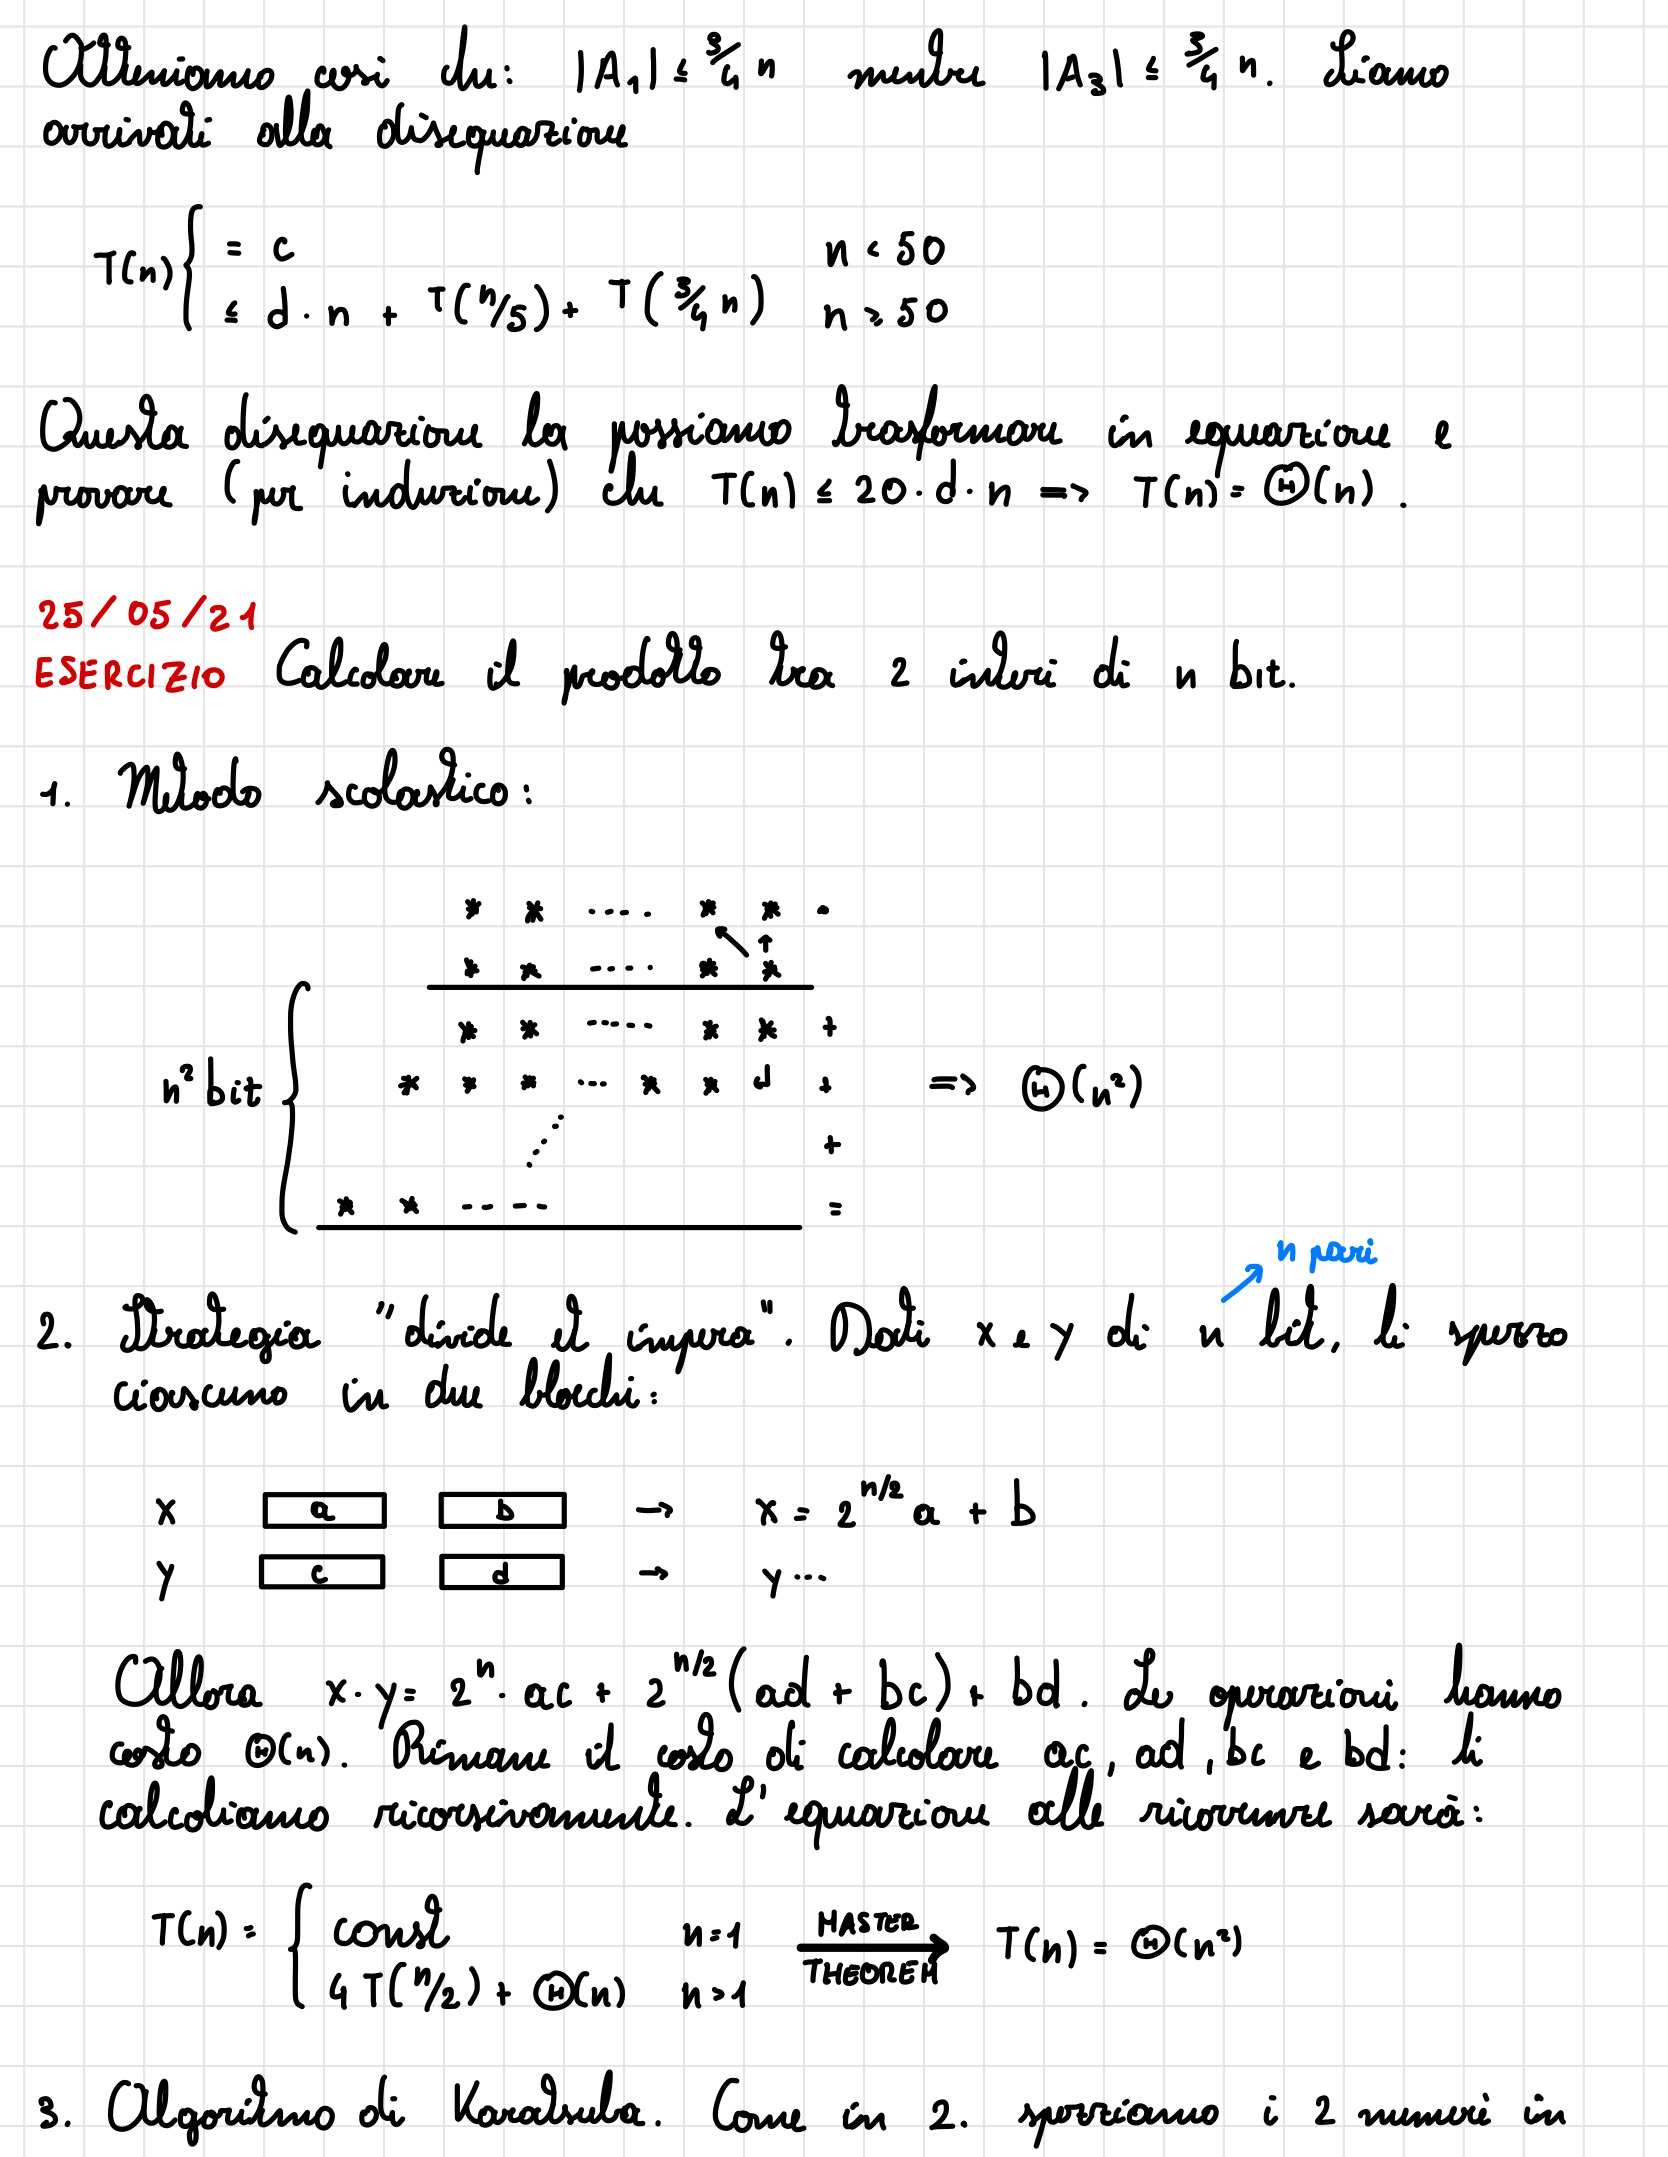 Otteniamo così che: |A₁| ≤ 3/4 n mentre |A₃| ≤ 3/4 n. Siamo
arrivati alla disequazione
T(n) { = c n < 50
≤ d · n + T(n/5) + T(3/4 n) n ≥ 50
Questa disequazione la possiamo trasformare in equazione e
provare (per induzione) che T(n) ≤ 20 · d · n => T(n) = Θ(n).
25/05/21
ESERCIZIO Calcolare il prodotto tra 2 interi di n bit.
1. Metodo scolastico:
* * .... * * ·
* * .... * *
* * ..... * * +
n² bit { * * * ... * * ↲ + => Θ(n²)
+
* * ---- =
n pari
2. Strategia "divide et impera". Dati x e y di n bit, li spezzo
ciascuno in due blocchi:
x a b → x = 2^{n/2} a + b
y c d → y ...
Allora x · y = 2^n · ac + 2^{n/2} (ad + bc) + bd. Le operazioni hanno
costo Θ(n). Rimane il costo di calcolare ac, ad, bc e bd: li
calcoliamo ricorsivamente. L'equazione alle ricorrenze sarà:
T(n) = { const n=1 MASTER THEOREM T(n) = Θ(n²)
4 T(n/2) + Θ(n) n>1
3. Algoritmo di Karatsuba. Come in 2. spezziamo i 2 numeri in